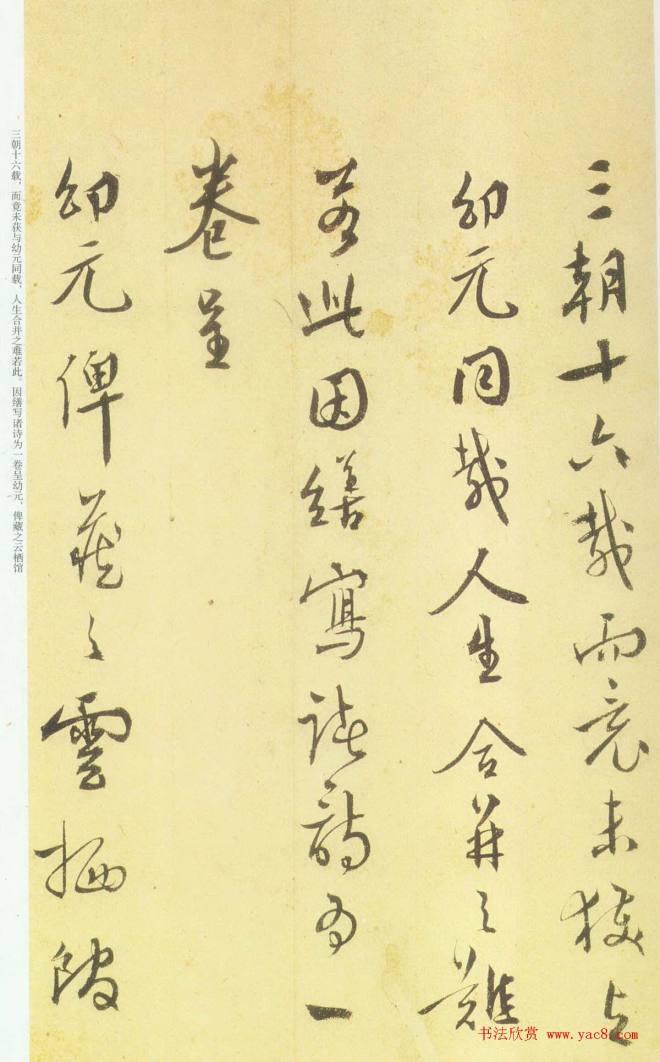 三朝十六載而竟未獲与
幼元同載人生合并之難
若此因繕寫諸詩為一
卷呈
幼元俾藏之雲栖館
三朝十六载，而竟未获与幼元同载，人生合并之难若此。因缮写诸诗为一卷呈幼元，俾藏之云栖馆
书法欣赏 www.yac8.com